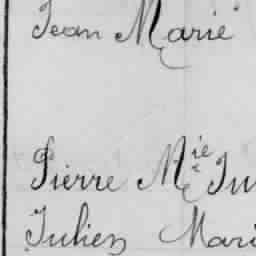 Jean Marie
Pierre Mie Ju
Julien Mari